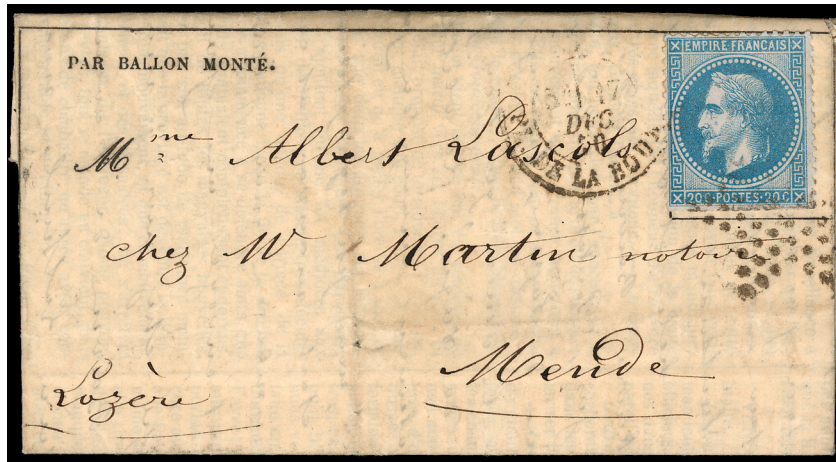 PAR BALLON MONTÉ.
EMPIRE FRANÇAIS
20 C POSTES 20 C
17
DEC
DE LA BOURSE
Mme Albert Lascols
chez Mr Martin notaire
Mende
Lozère